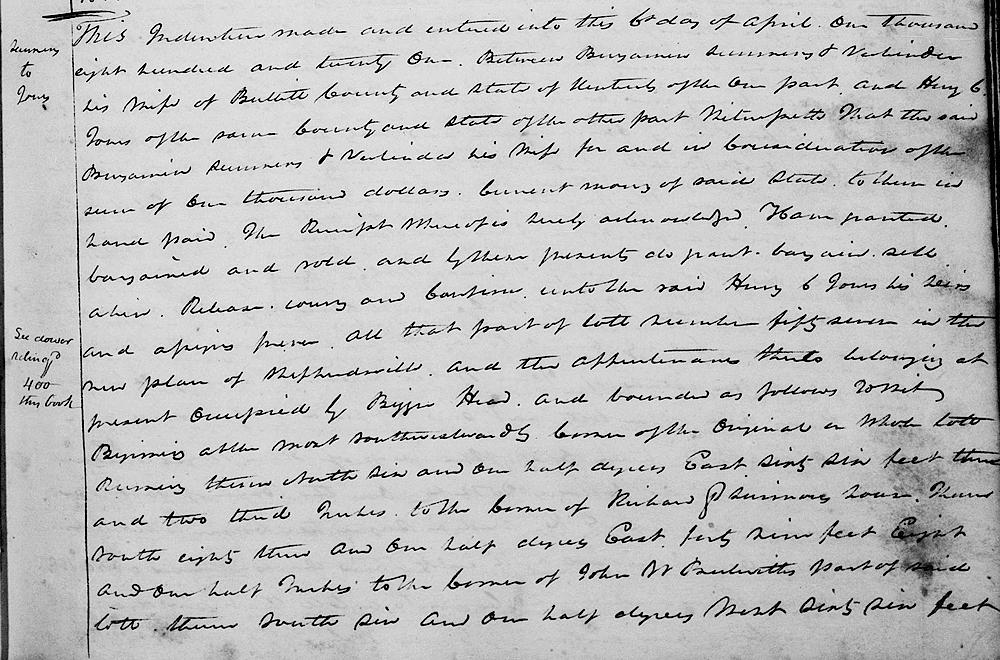 Summers
to
Jones
This Indenture made and entered into this 6th day of April. One thousand
eight hundred and twenty One. Between Benjamin Summers & Verlinder
his Wife of Bullitt County and State of Kentucky of the One part. and Henry C
Jones of the same County and State of the other part Witnesseth That the said
Benjamin Summers & Verlinder his Wife for and in Consideration of the
sum of One thousand dollars. Current money of said State. to them in
hand paid. The Receipt Whereof is hereby acknowledged. Have granted.
bargained and sold. and by these presents do grant. bargain. sell
alien. Release. convey and Confirm. unto the said Henry C Jones his heirs
and assigns forever. all that part of lott number fifty seven in the
new plan of Shepherdsville. and the appurtenances thereto belonging at
present Occupied by Head. and bounded as follows towit
Begining at the most southwestwardly Corner of the Original or Whole lott
Running thence North six and One half degrees East sixty six feet three
and two third Inches. to the Corner of Richard Simmons house. Thence
south eighty three and One half degrees East. forty nine feet Eight
and One half Inches to the Corner of John W part of said
lott. thence South six and One half degrees West sixty six feet
See dower
relinqd
400
this book